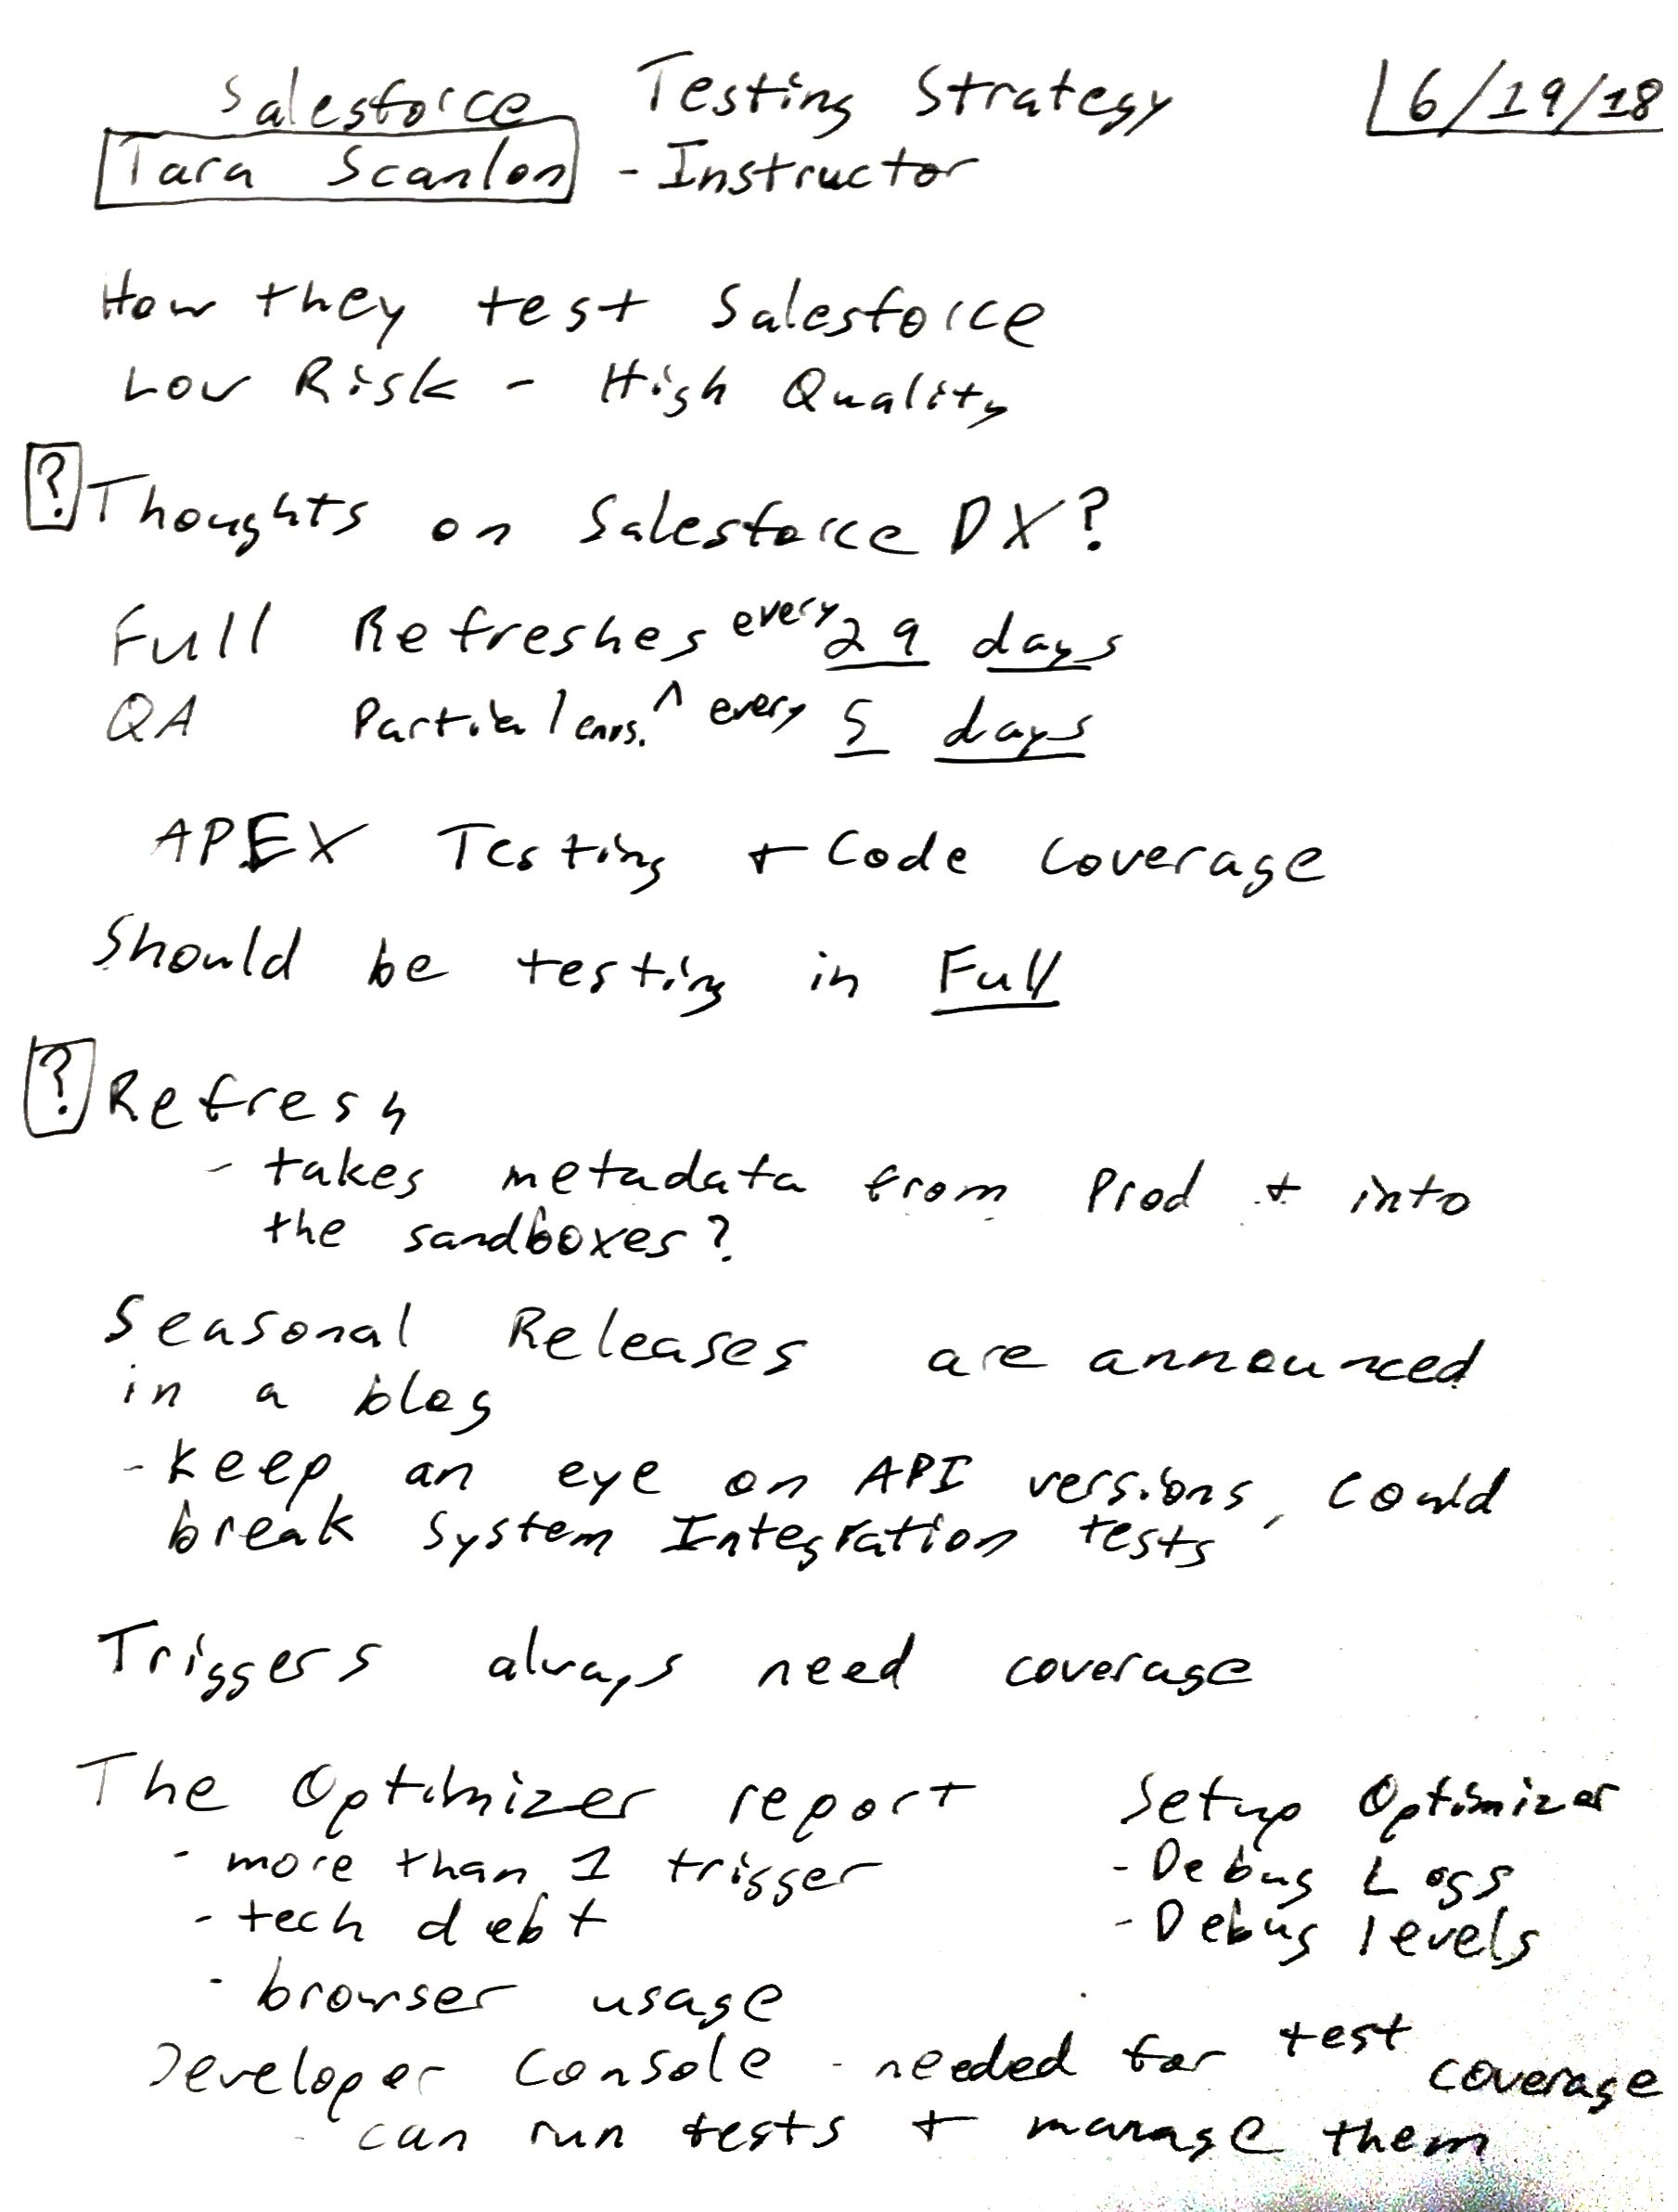 Salesforce Testing Strategy 6/19/18
Tara Scanlon - Instructor
How they test Salesforce
Low Risk - High Quality
? Thoughts on Salesforce DX?
Full Refreshes every 29 days
QA Partial envs. ^ every 5 days
APEX Testing + Code Coverage
Should be testing in Full
? Refresh
- takes metadata from Prod + into
the sandboxes?
Seasonal Releases are announced
in a blog
- Keep an eye on API versions, could
break System Integration tests
Triggers always need coverage
The Optimizer report
- more than 1 trigger
- tech debt
- browser usage
Setup Optimizer
- Debug Logs
- Debug levels
Developer Console - needed for test coverage
- can run tests + manage them